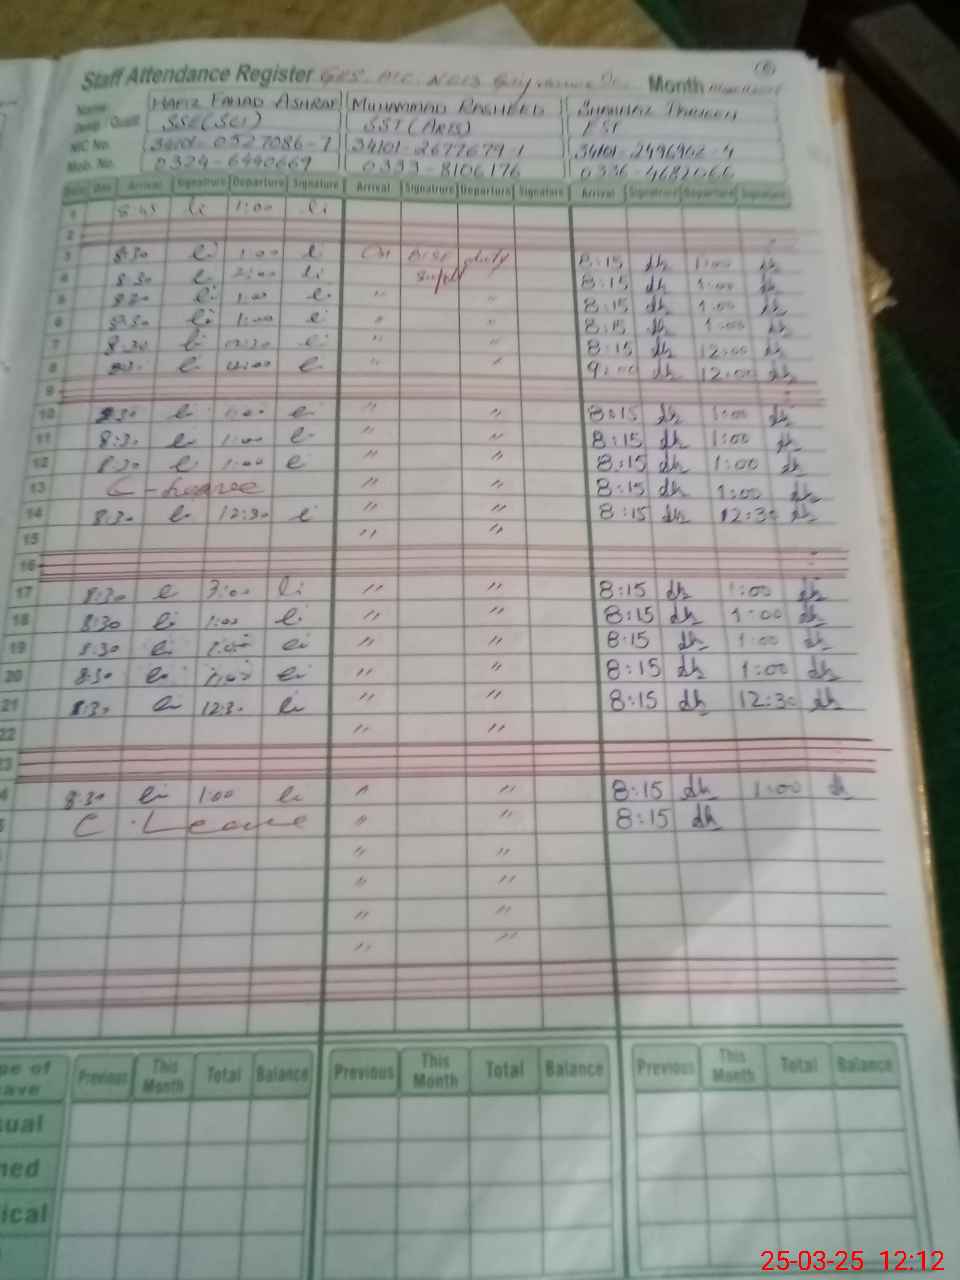 Staff Attendance Register Month
Name HAFIZ FAHAD ASHRAF MUHAMMAD RASHEED
Desig / Qualif. SSE(SCI) SST (ARTS) EST
NIC No. 34101-0527086-7 34101-2677679-1 34101-2496962-4
Mob. No. 0324-6440669 0333-8106176 0336-4682066
Date Day Arrival Signature Departure Signature Arrival Signatrure Departure Signature Arrival Signatrure Departure Signature
1 8:45 li 1:00 li
2
3 8:30 li 1:00 li On duty 8:15 dh 1:00 dh
4 8:30 li 2:00 li 8:15 dh 1:00 dh
5 8:30 li 1:00 li " " 8:15 dh 1:00 dh
6 8:30 li 1:00 li " " 8:15 dh 1:00 dh
7 8:30 li 12:30 li " " 8:15 dh 12:00 dh
8 li 12:00 li " " 9:00 dh 12:00 dh
9
10 8:30 li 1:00 li " " 8:15 dh 1:00 dh
11 8:30 li 1:00 li " " 8:15 dh 1:00 dh
12 8:30 li 1:00 li " " 8:15 dh 1:00 dh
13 C-Leave " " 8:15 dh 1:00 dh
14 8:30 li 12:30 li " " 8:15 dh 12:30 dh
15 " "
16
17 8:30 li 3:00 li " " 8:15 dh 1:00 dh
18 8:30 li 1:00 li " " 8:15 dh 1:00 dh
19 8:30 li li " " 8:15 dh 1:00 dh
20 8:30 li li " " 8:15 dh 1:00 dh
21 8:30 li 12:30 li " " 8:15 dh 12:30 dh
22 " "
23
4 8:30 li 1:00 li " " 8:15 dh 1:00 dh
5 C.Leave " " 8:15 dh
" "
" "
" "
" "
pe of ave Previous This Month Total Balance Previous This Month Total Balance Previous This Month Total Balance
sual
ned
ical
25-03-25 12:12